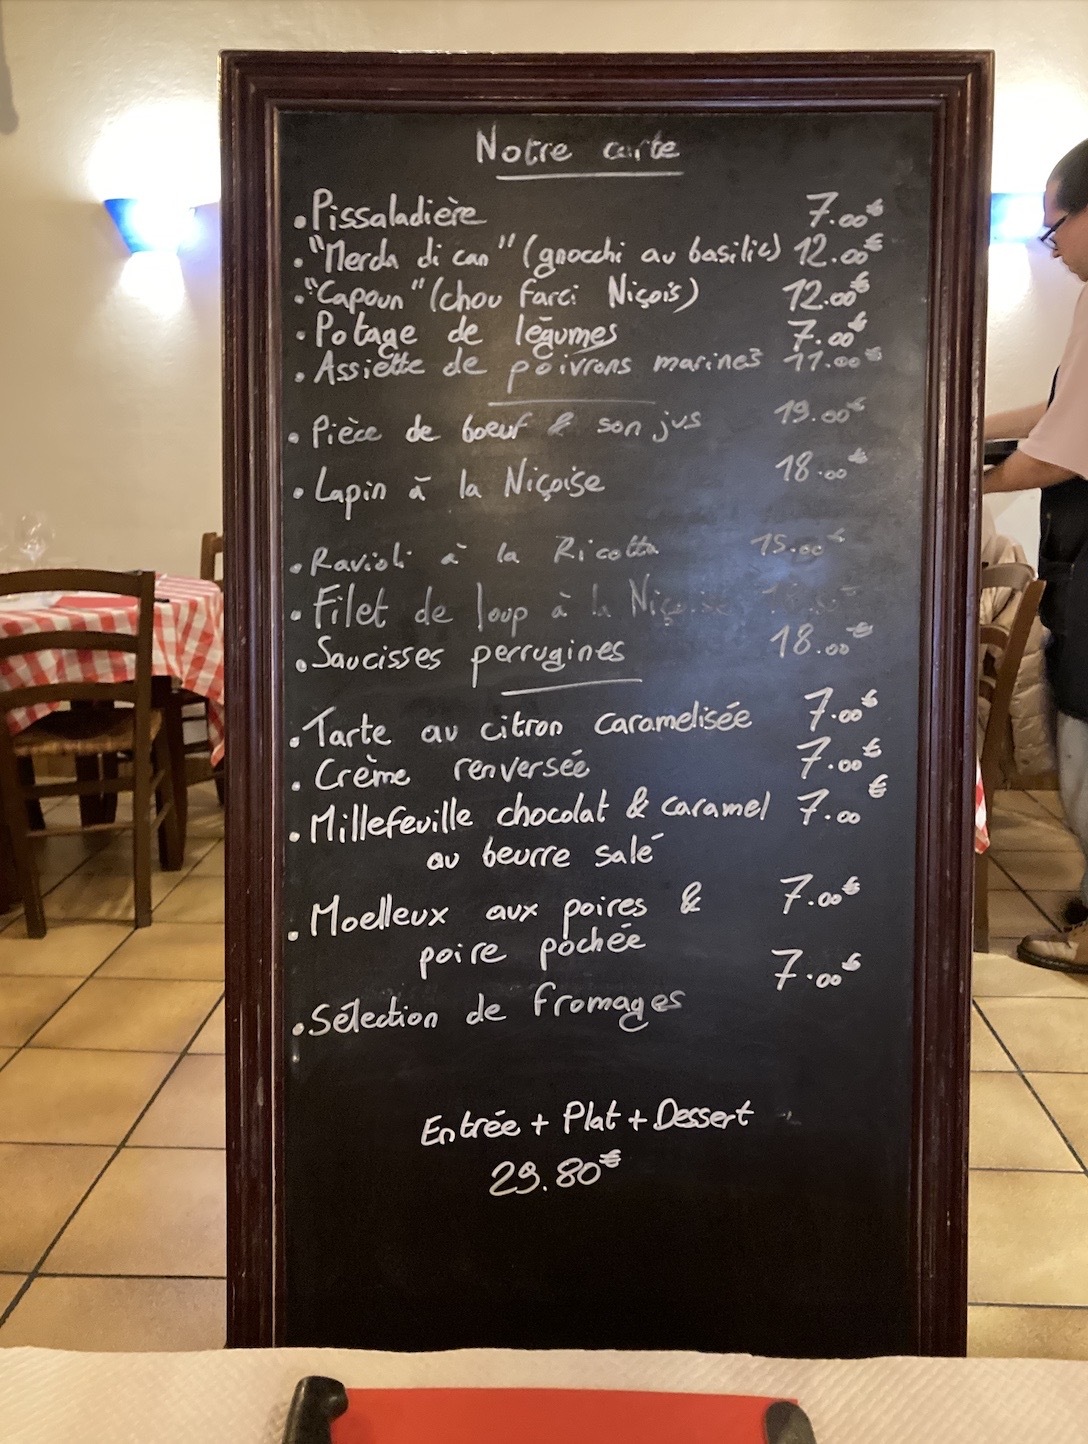 Notre carte
. Pissaladière 7.00€
. "Merda di can" (gnocchi au basilic) 12.00€
. "Capoun" (chou farci Niçois) 12.00€
. Potage de légumes 7.00€
. Assiette de poivrons marinés 11.00€
. Pièce de boeuf & son jus 19.00€
. Lapin à la Niçoise 18.00€
. Ravioli à la Ricotta 15.00€
. Filet de loup à la Niçoise
. Saucisses perrugines 18.00€
. Tarte au citron caramelisée 7.00€
. Crème renversée 7.00€
. Millefeuille chocolat & caramel 7.00€
au beurre salé
. Moelleux aux poires & 7.00€
poire pochée
. Sélection de fromages 7.00€
Entrée + Plat + Dessert
29.80€